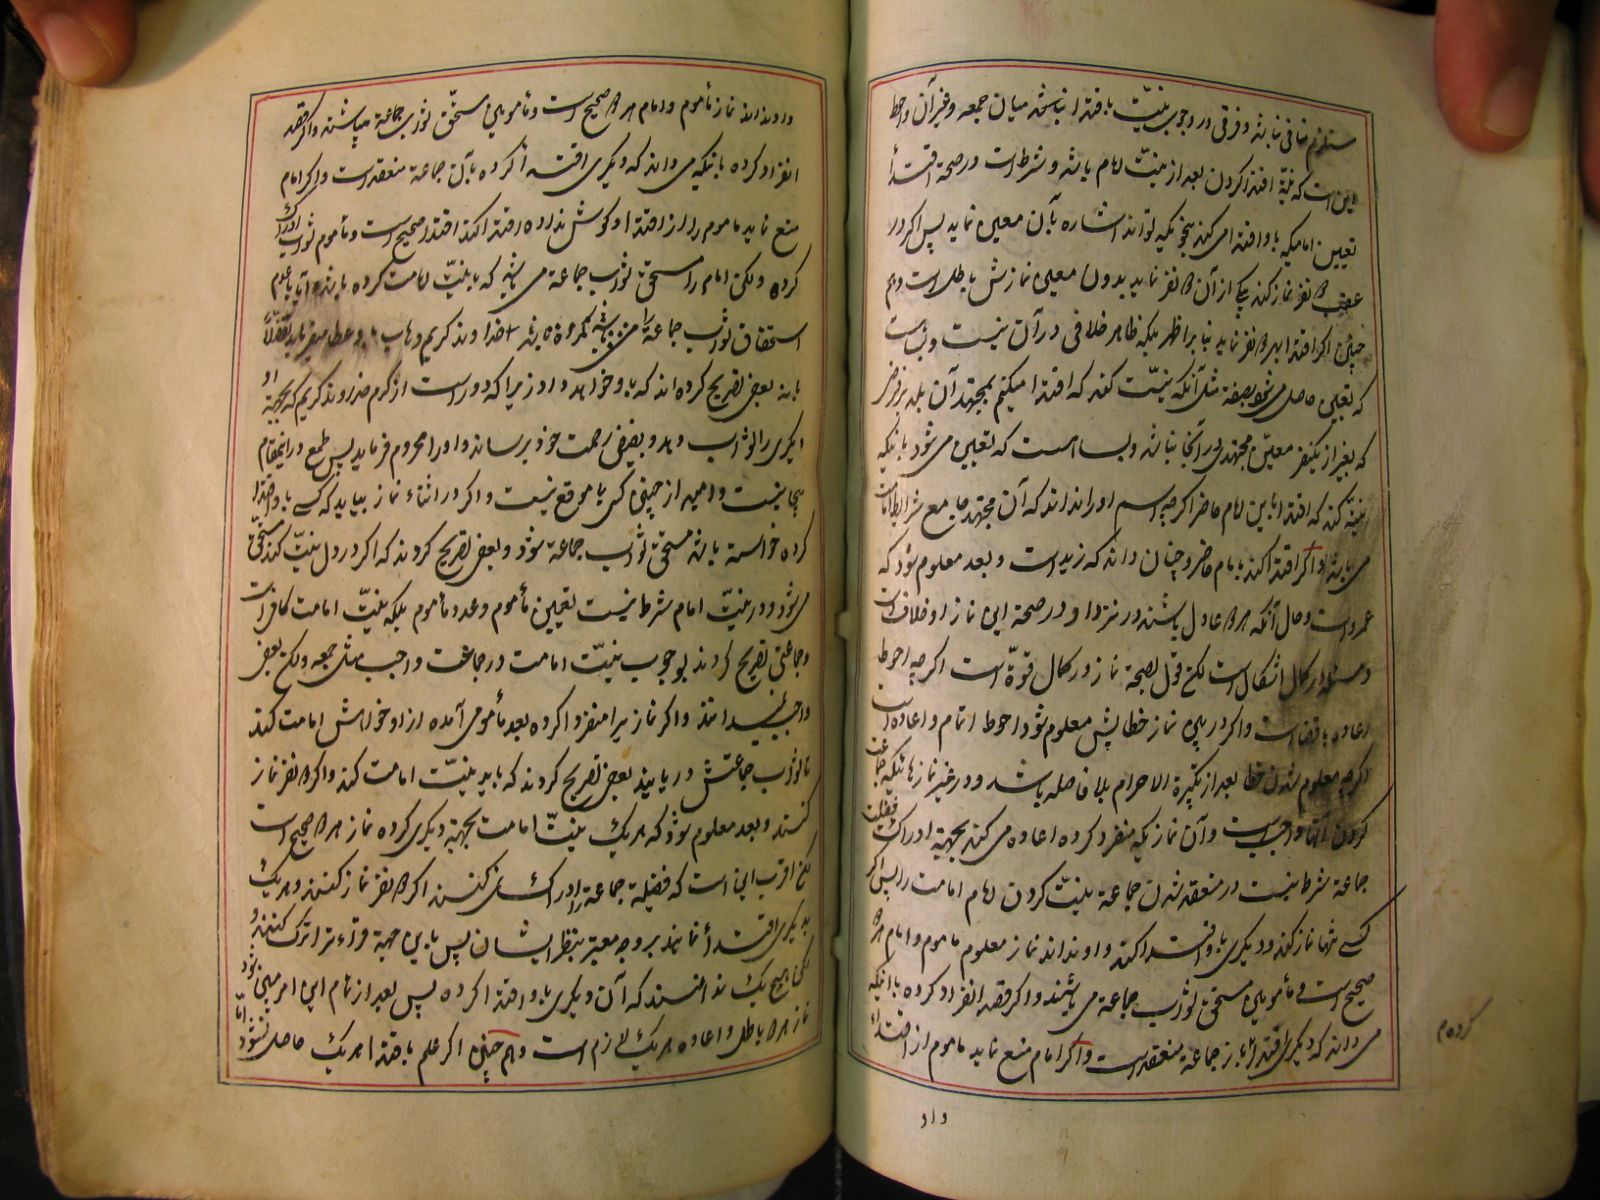 مستلزم منافی نباشد و فرقی در وجوب نیّت باقتدا نباشد میان جمعه و غیر آن واحوط
این است که نیّة اقتدا کردن بعد از نیّت امام باشد و شرط است در صحة اقتدأ
تعیین امامیکه باو اقتدا می کند بنحویکه تواند اشاره بآن معین نماید پس اکر در
عقب ۲ نفر نماز کند بیکی از آن ۲ نفر نماید بدون معین نمازش باطل است وهم
چنین اکر اقتدا بهر ۲ نفر نماید بنا بر اظهر بلکه ظاهر خلافی در آن نیست و بسا است
که تعیین حاصل می شود بصفة مثل آنکه نیّت کند که اقتدا میکنم بمجتهد آن بلد بر فرض
که بغیر از یکنفر معیّن مجتهدی در آنجا نباشد و بسا هست که تعیین می شود بانیکه
نیّة کند که اقتدا باین امام حاضر اکرچه اسم او را نداند که آن مجتهد جامع شرایط امامت
می باشد و اکر اقتدا کند بامام حاضر و چنان داند که زید است و بعد معلوم شود که
عمرو است و حال آنکه هر ۲ عادل باشند در نزد او در صحة این نماز او خلاف است
و مسئله در کمال اشکال است لکن قول بصحة نماز در کمال قوّة است اکرچه احوط
اعاده یا قضا است و اکر در بین نماز خطایش معلوم شود احوط اتمام و اعاده است
اکرچه معلوم شدن خطا بعد از تکبیرة الاحرام بلا فاصله باشد و در غیر نمازهائیکه جماعت
کردن آنها واجب است و آن نمازیکه منفرد کرده اعاده می کند بجهة ادراک فضیلت
جماعة شرط نیست در منعقد شدن جماعة نیّت کردن امام امامت را پس اکر
کسی تنها نماز کند و دیکری باو اقتدا کند و او نداند نماز معلوم ماموم و امام هر ۲
صحیح است و مأمومین مستحق ثواب جماعة می باشند و اکر قصد انفراد کرده باانیکه
می داند که دیکری اقتدا باز جماعة منعقد است و اکر امام منع نماید ماموم از اقتداء
کرده م
واو
و او نداند نماز مأموم و امام هر ۲ صحیح است و مأمومین مستحق ثواب جماعة میباشند و اکر قصد
انفراد کرده بانیکه می داند که دیکری اقتدأ کرده باآن جماعة منعقد است و اکر امام
منع نماید ماموم را از اقتدا و کوش نداده اقتدا کند اقتدا صحیح است و مأموم ثواب ادراک
کرده و لکن امام را مستحق ثواب جماعة می باشد که بانیّت امامت کرده باشد
استحقاق ثواب جماعة را خداوند کریم وهاب عطا میفرماید تفضّلاً
بانه بعض تصریح کرده اند که باو خواهد داد زیرا که دور است از کرم خداوند کریم که بجهة او
دیکری را ثواب دهد و بفیض رحمت خود برساند و او را محروم فرماید پس طمع در اینمقام
بیجا نیست و امید از چنین کس بیموقع نیست و اکر در اثناء نماز بیاید که کسی باو اقتدا
کرده خواسته باشد مستحق ثواب جماعة شود و بعض تصریح کردند که اکر در دل نیّت کند مستحق
می شود و در نیّت امام شرط نیست تعیین مأموم و عدد مأموم بلکه نیّت امامت کافی است
و جماعتی تصریح کردند بوجوب نیّت امامت در جماعت واجب مثل جمعه و لکن بعض
واجب نمیدانند و اکر نماز پیرا منفرد کرده بعد مأمومی آمده از او خواهش امامت کند
تا ثواب جماعتش دریابند بعض تصریح کردند که باید نیّت امامت کند و اکر ۲ نفر نماز
کنند و بعد معلوم شود که هر یک نیّت امامت بجهة دیکری کرده نماز هر ۲ صحیح است
لکن اقرب این است که فضیلة جماعة را ادراک نمی کنند اکر ۲ نفر نماز کنند و هر یک
بدیکری اقتدأ نمایند بر وجه معتبر بنظر ایشان پس باین جهة قراءة را ترک کنند و
لکن هیچ یک ندانستند که آن دیکری باو اقتدا کرده پس بعد از تمام این امر مبین شود
نماز هر ۲ باطل و اعاده هر یک لازم است و هم چنین اکر علم باقتدا هر یک حاصل نشود امّا